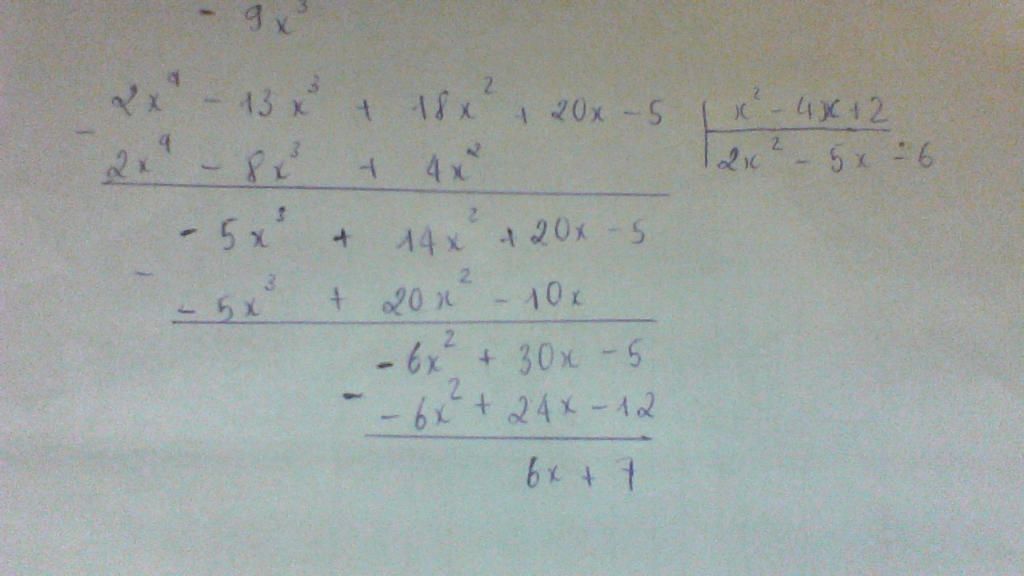 - 9x³
2x⁴ - 13x³ + 18x² + 20x - 5 | x² - 4x + 2
- 2x⁴ - 8x³ + 4x² | 2x² - 5x - 6
- 5x³ + 14x² + 20x - 5
- - 5x³ + 20x² - 10x
- 6x² + 30x - 5
- - 6x² + 24x - 12
6x + 7